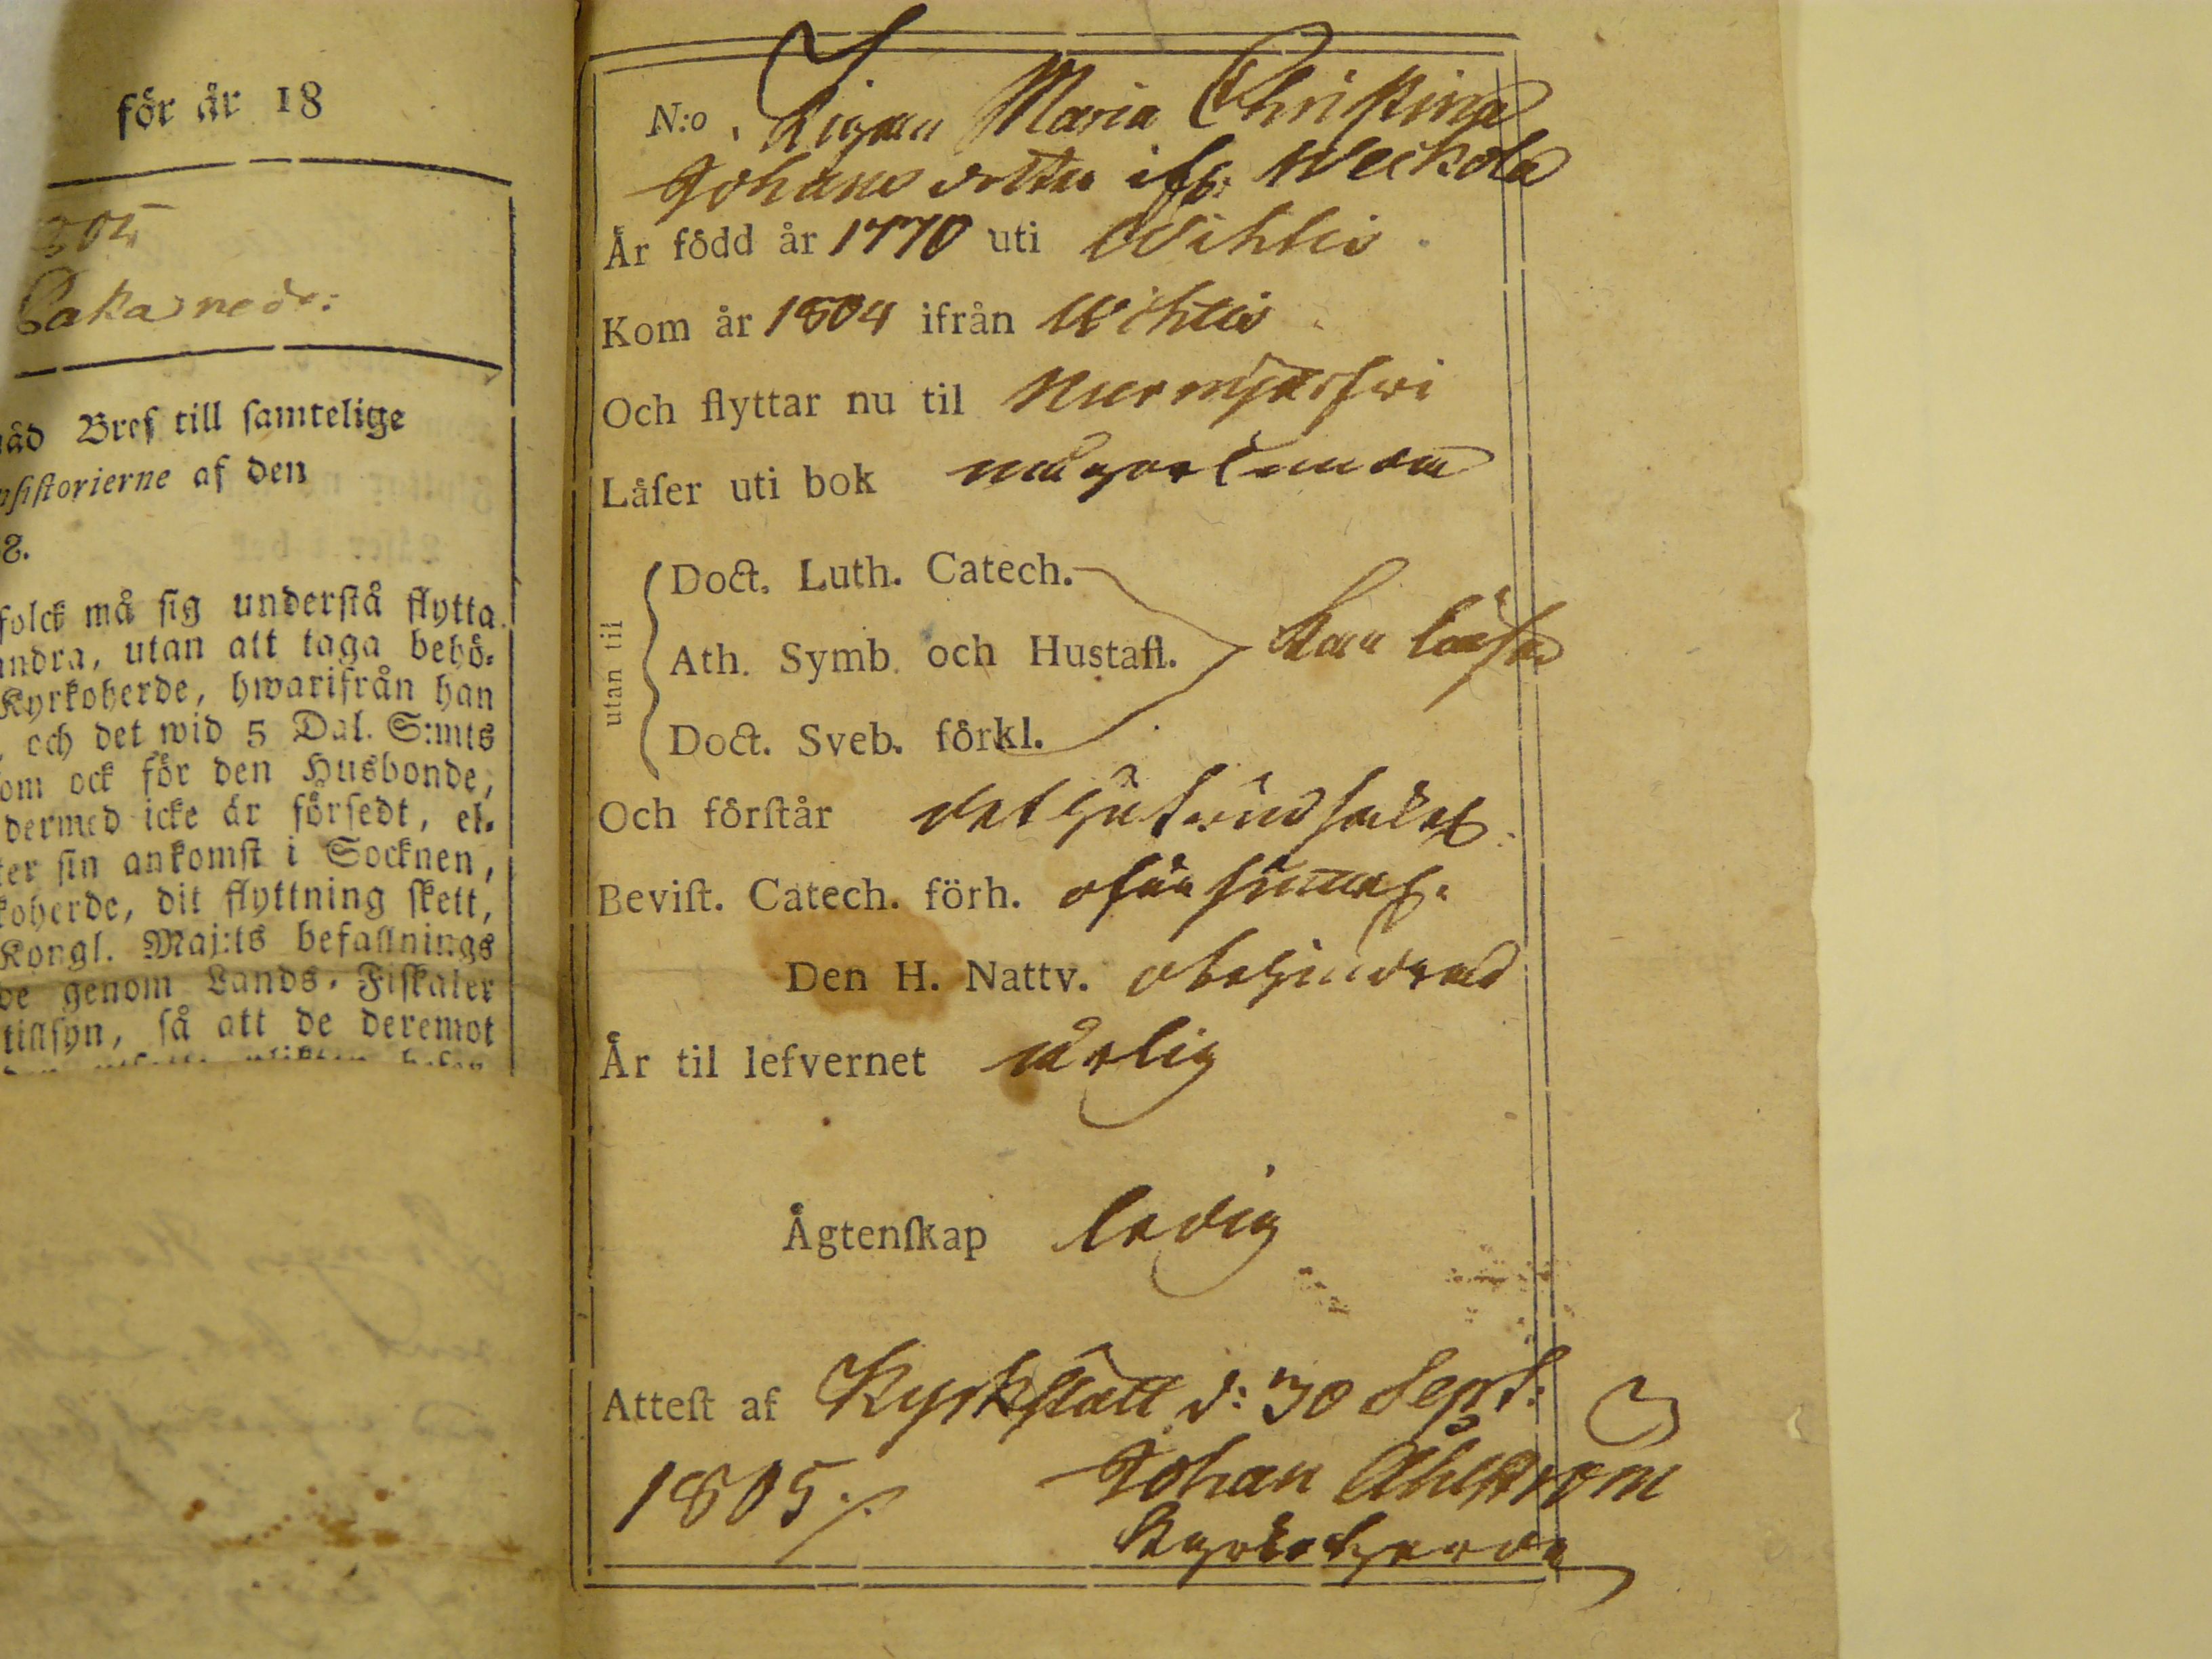 för år 18
305
Laka nedr:
nåd Bref till samtelige
nsistorierne af den
8.
folck må sig understå flytta
andra, utan att taga behö-
Kyrkoherde, hwarifrån han
, och det wid 5 Dal. S:mts
om ock för den Husbonde,
dermed icke är försedt, el-
ter sin ankomst i Socknen,
koherde, dit flyttning skett,
Kongl. Maj:ts befallnings
de genom Lands-Fiskaler
tillsyn, så att de deremot
N:o Pigan Maria Christina
Johans dotter ifr: Weikola
År född år 1770 uti Wihtis
Kom år 1804 ifrån Wihtis
Och flyttar nu til Nurmijerfwi
Läser uti bok någorlunda
utan til
Doct. Luth. Catech.
Ath. Symb. och Hustafl. kan läsa
Doct. Sveb. förkl.
Och förstår det hufwudsakel:
Bevist. Catech. förh. ofta
Den H. Nattv. obehindrad
År til lefvernet ärlig
Ägtenskap ledig
Attest af Kyrkslätt d: 30 Sept:
1805 Johan Åhlström
Kyrkoherde